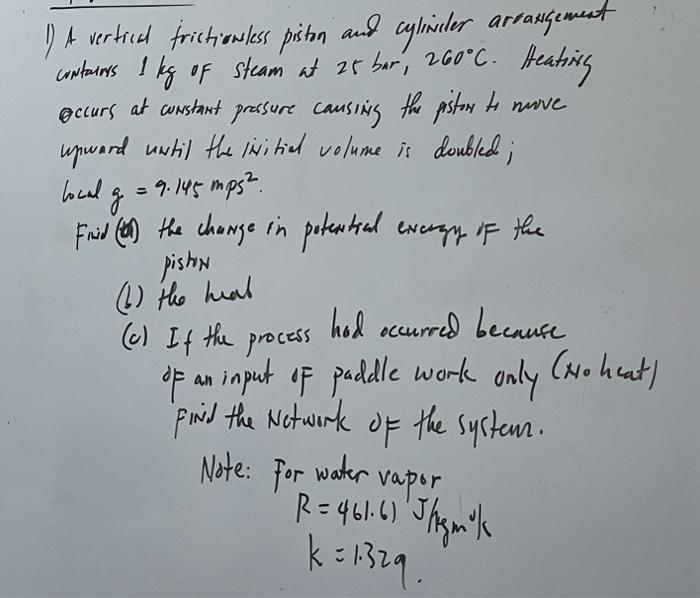 1) A vertical frictionless piston and cylinder arrangement
contains 1 kg of steam at 25 bar, 260°C. Heating
occurs at constant pressure causing the piston to move
upward until the initial volume is doubled;
local g = 9.145 mps².
Find (a) the change in potential energy of the
piston
(b) the heat
(c) If the process had occurred because
of an input of paddle work only (No heat)
Find the Network of the system.
Note: For water vapor
R = 461.61 J/kgm°k
k = 1.329.